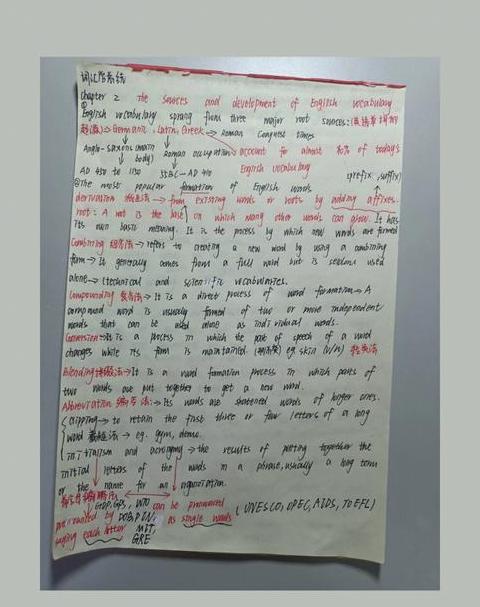 词汇学系统
chapter 2 The sources and development of English vocabulary
English vocabulary sprang from three major root sources:
Germanic, Latin, Greek → Roman Conquest times
Anglo-saxons (main body) Roman occupation account for almost of today's
AD 450 to 1150 55BC-AD 410 English vocabulary
(prefix, suffix)
② The most popular formation of English words
derivation → from existing words or roots by adding affixes.
root: A root is the base on which many other words can grow. It has
its own basic meaning. It is the process by which new words are formed
Combining → refers to creating a new word by using a combining
form → It generally comes from a full word but is seldom used
alone → (technical and scientific vocabularies.
Compounding → It is a direct process of word formation → A
compound word is usually formed of two or more independent
words that can be used alone as individual words.
Conversion → it is a process in which the part of speech of a word
changes while its form is maintained. eg. skin (n/v) 转类法
Blending → It is a word formation process in which parts of
two words are put together to get a new word.
Abbreviation → Its words are shortened words of longer ones.
clipping → to retain the first three or four letters of a long
word 截短法 → eg. gym, demo.
initialism and acronymy → the results of putting together the
initial letters of the words in a phrase, usually a long term
or the name for an organization.
GDP, GPS, WTO can be pronounced (UNESCO, OPEC, AIDS, TOEFL)
pronounced by as single words
saying each letter MIT,
GRE